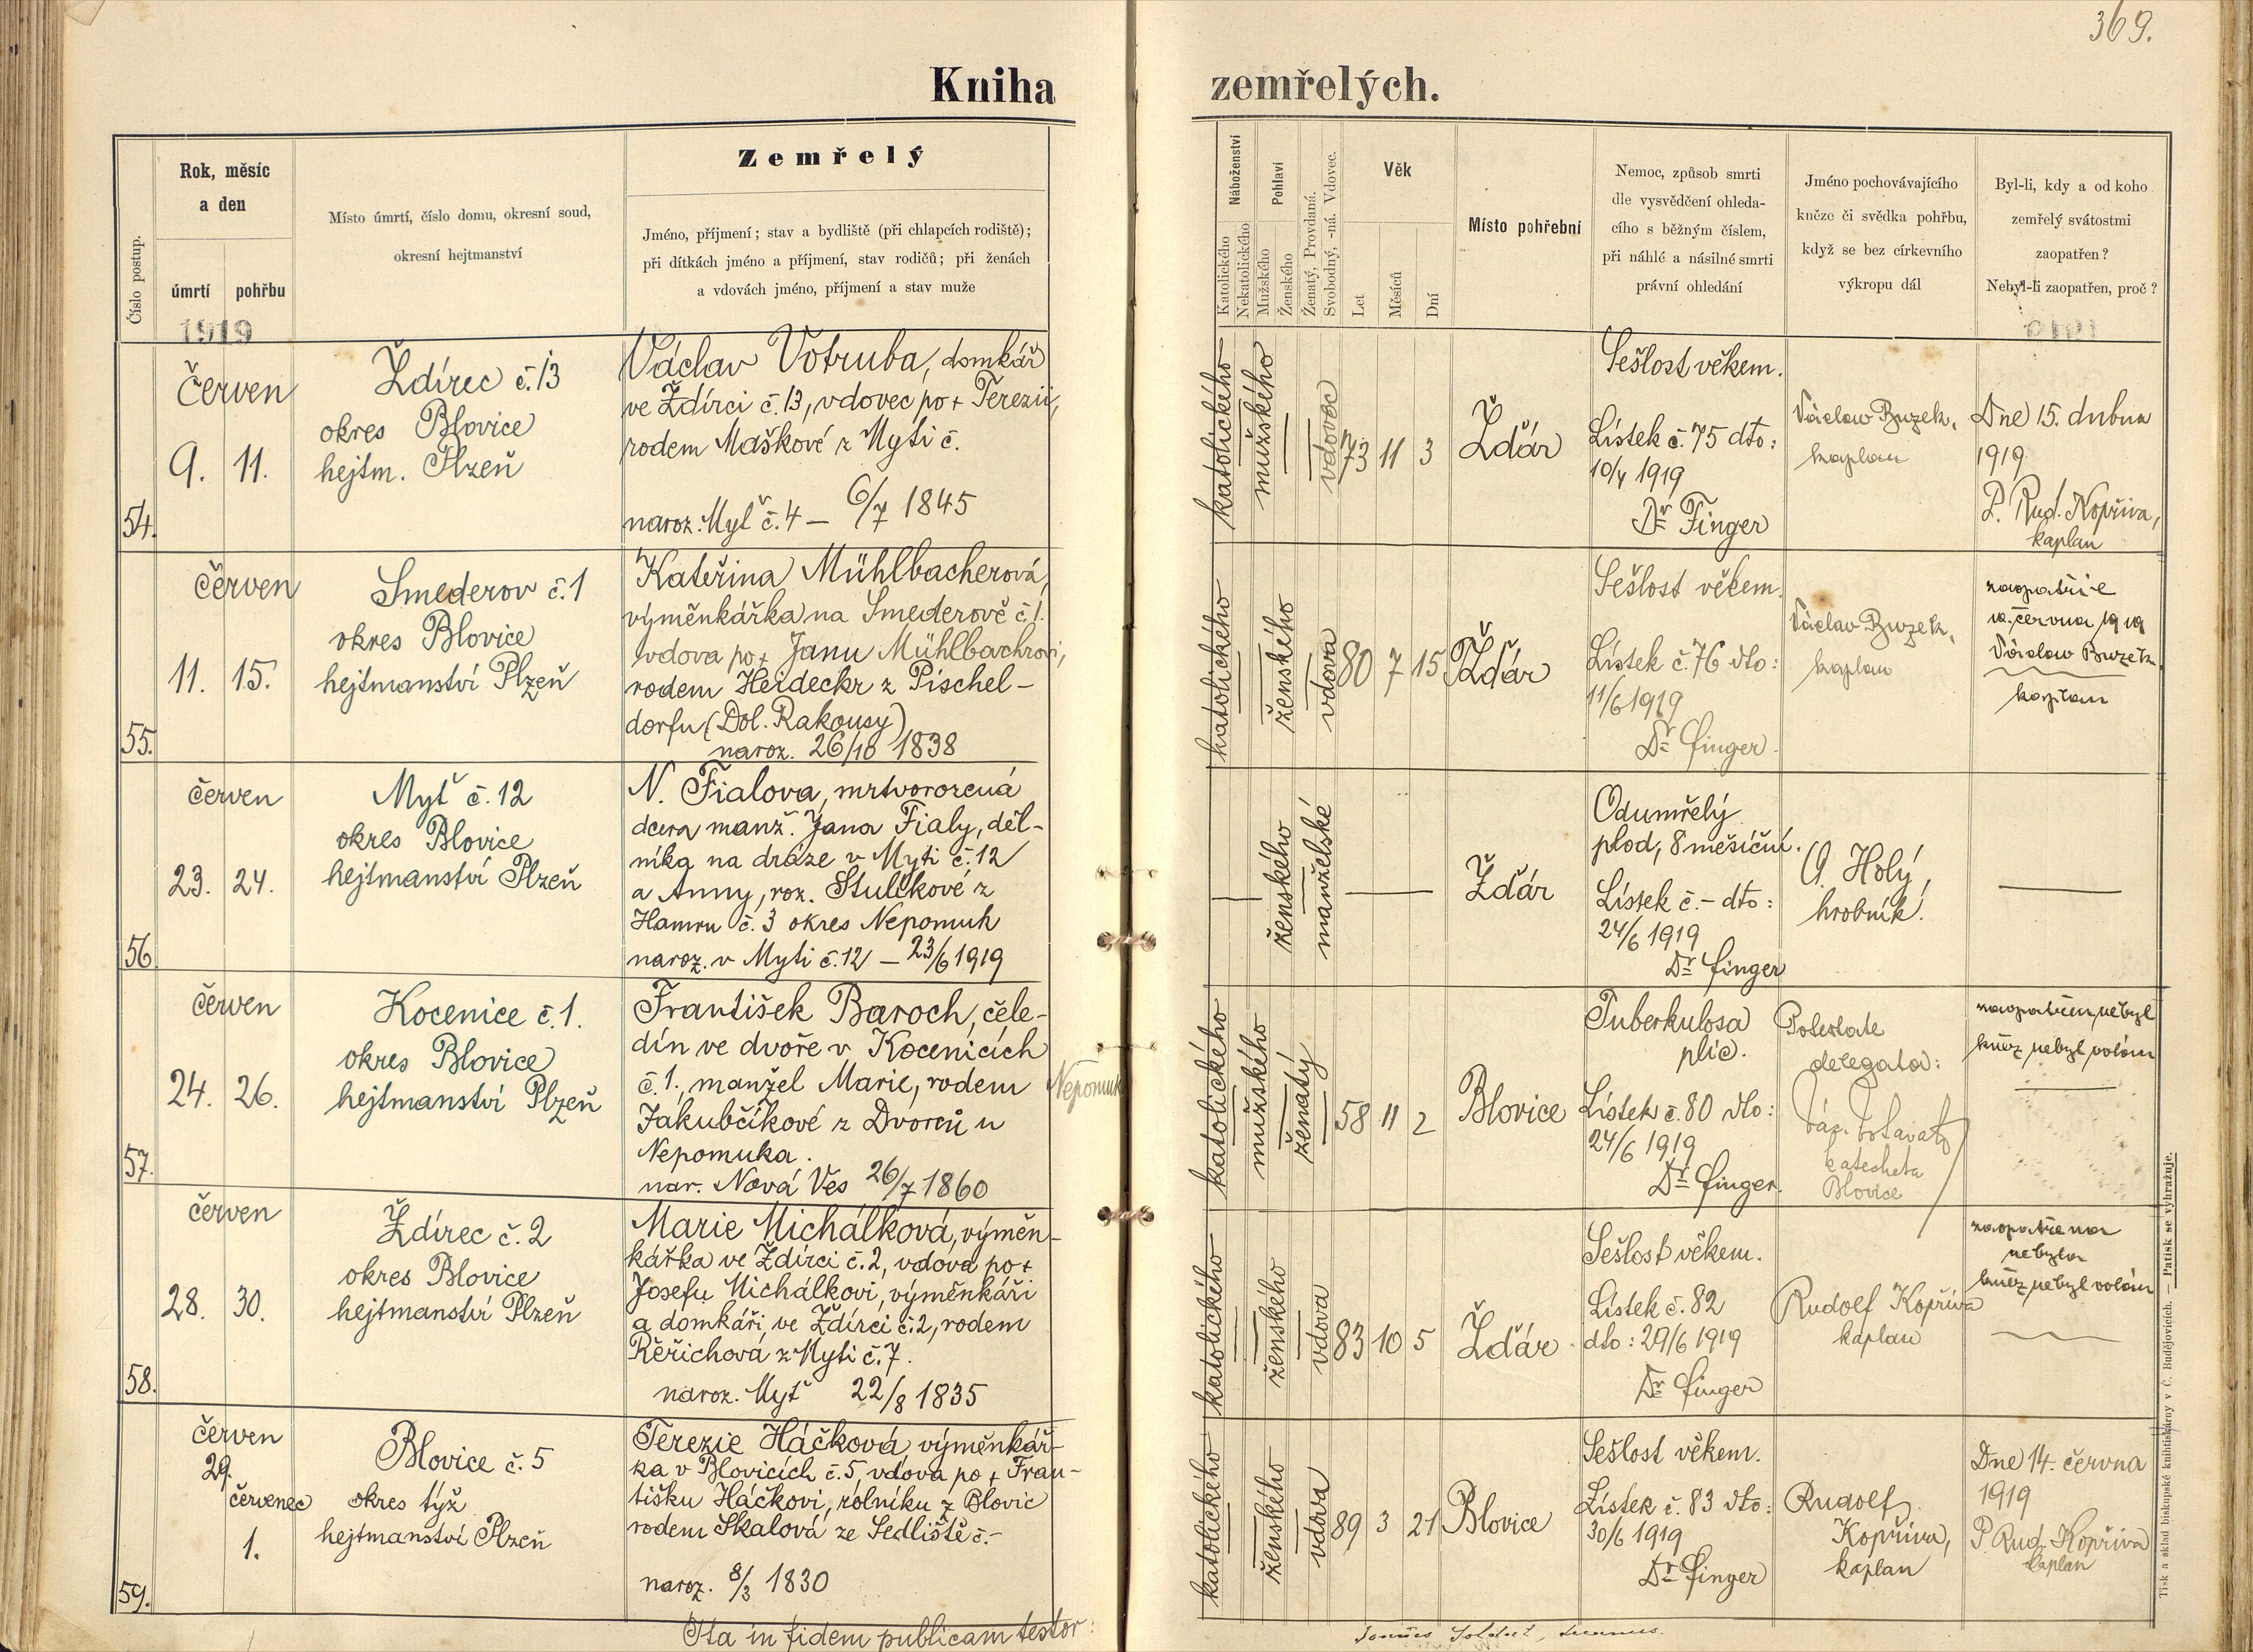 369.
Kniha zemřelých.
Číslo postup.
Rok, měsíc
a den
úmrtí
pohřbu
1919
Místo úmrtí, číslo domu, okresní soud,
okresní hejtmanství
Zemřelý
Jméno, příjmení; stav a bydliště (při chlapcích rodiště);
při dítkách jméno a příjmení, stav rodičů; při ženách
a vdovách jméno, příjmení a stav muže
Náboženství
Katolického
Nekatolického
Pohlaví
Mužského
Ženského
Ženatý, Provdaná.
Svobodný, -ná. Vdovec.
Věk
Let
Měsíců
Dní
Místo pohřební
Nemoc, způsob smrti
dle vysvědčení ohleda-
cího s běžným číslem,
při náhlé a násilné smrti
právní ohledání
Jméno pochovávajícího
kněze či svědka pohřbu,
když se bez církevního
výkropu dál
Byl-li, kdy a od koho
zemřelý svátostmi
zaopatřen?
Nebyl-li zaopatřen, proč?
54.
červen
9. 11.
Ždírec č. 13
okres Blovice
hejtm. Plzeň
Václav Votruba, domkář
ve Ždírci č. 13, vdovec po + Terezii,
rodem Maškové z Myti č.
naroz. Myť č. 4 – 6/7 1845
katolického
mužského
vdovec
73 11 3
Žďár
Sešlost věkem.
Lístek č. 75 dto:
1919
Dr Finger
Václav Buzek,
kaplan
Dne 15. dubna
1919
P. Rud. Kopřiva,
kaplan
55.
červen
11. 15.
Smederov č. 1
okres Blovice
hejtmanství Plzeň
Kateřina Mühlbacherová,
výměnkářka na Smederově č. 1.
vdova po + Janu Mühlbachrovi,
rodem Heideckr z Pischel-
dorfu (Dol. Rakousy)
naroz. 26/10 1838
katolického
ženského
vdova
80 7 15
Žďár
Sešlost věkem.
Lístek č. 76 dto:
11/6 1919
Dr Finger
Václav Buzek,
kaplan
června 1919
Václav Buzek
kaplan
56.
červen
23. 24.
Myť č. 12
okres Blovice
hejtmanství Plzeň
N. Fialova, mrtvorozená
dcera manž. Jana Fialy, děl-
níka na dráze v Myti č. 12
a Anny, roz. Stulíkové z
Hamru č. 3 okres Nepomuk
naroz. v Myti č. 12 – 23/6 1919
ženského
manželské
Žďár
Odumřelý
plod, 8 měsíční.
Lístek č. – dto:
24/6 1919
Dr Finger
Holý,
hrobník.
57.
červen
24. 26.
Kocenice č. 1.
okres Blovice
hejtmanství Plzeň
František Baroch, čele-
dín ve dvoře v Kocenicích
č. 1., manžel Marie, rodem
Nepomuk
Jakubčíkové z Dvorců u
Nepomuka.
nar. Nová Ves 26/7 1860
katolického
mužského
ženatý
58 11 2
Blovice
Tuberkulosa
plic.
Lístek č. 80 dto:
24/6 1919
Dr Finger.
Potestate
delegata:
katecheta
Blovice
zaopatřen nebyl
kněz nebyl volán
58.
červen
28. 30.
Ždírec č. 2
okres Blovice
hejtmanství Plzeň
Marie Michálková, výměn-
kářka ve Ždírci č. 2, vdova po +
Josefu Michálkovi, výměnkáři
a domkáři ve Ždírci č. 2, rodem
Řeřichová z Myti č. 7.
naroz. Myť 22/8 1835
katolického
ženského
vdova
83 10 5
Žďár
Sešlost věkem.
Lístek č. 82
dto: 29/6 1919
Dr Finger
Rudolf Kopřiva
kaplan
zaopatřena
nebyla
kněz nebyl volán
59.
červen
29.
červenec
1.
Blovice č. 5
okres týž
hejtmanství Plzeň
Terezie Háčková výměnkář-
ka v Blovicích č. 5, vdova po + Fran-
tišku Háčkovi, rolníku z Blovic
rodem Skalová ze Sedliště č. –
naroz. 8/3 1830
katolického
ženského
vdova
89 3 21
Blovice
Sešlost věkem.
Lístek č. 83 dto:
30/6 1919
Dr Finger
Rudolf
Kopřiva,
kaplan
Dne 14. června
1919
P. Rud. Kopřiva
kaplan
Ita in fidem publicam testor:
Tisk a sklad biskupské knihtiskárny v Č. Budějovicích. — Patisk se vyhražuje.